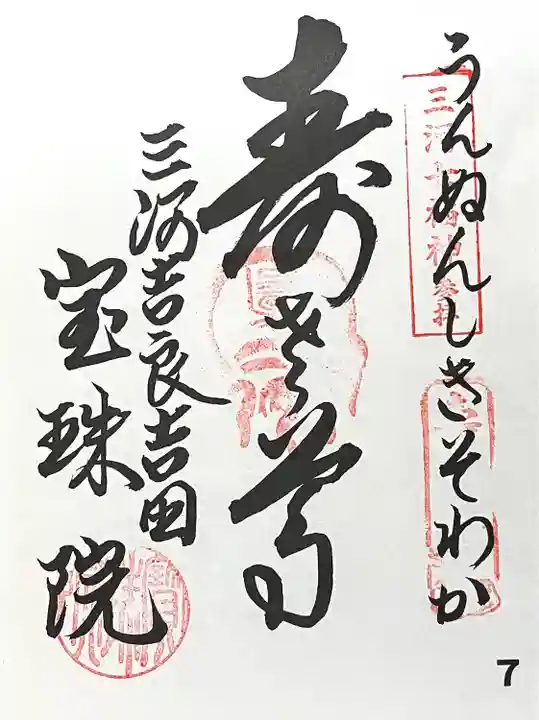 うんぬんしきそわか
三河七福神参拝
寿老尊
三河吉良吉田
宝珠院
7